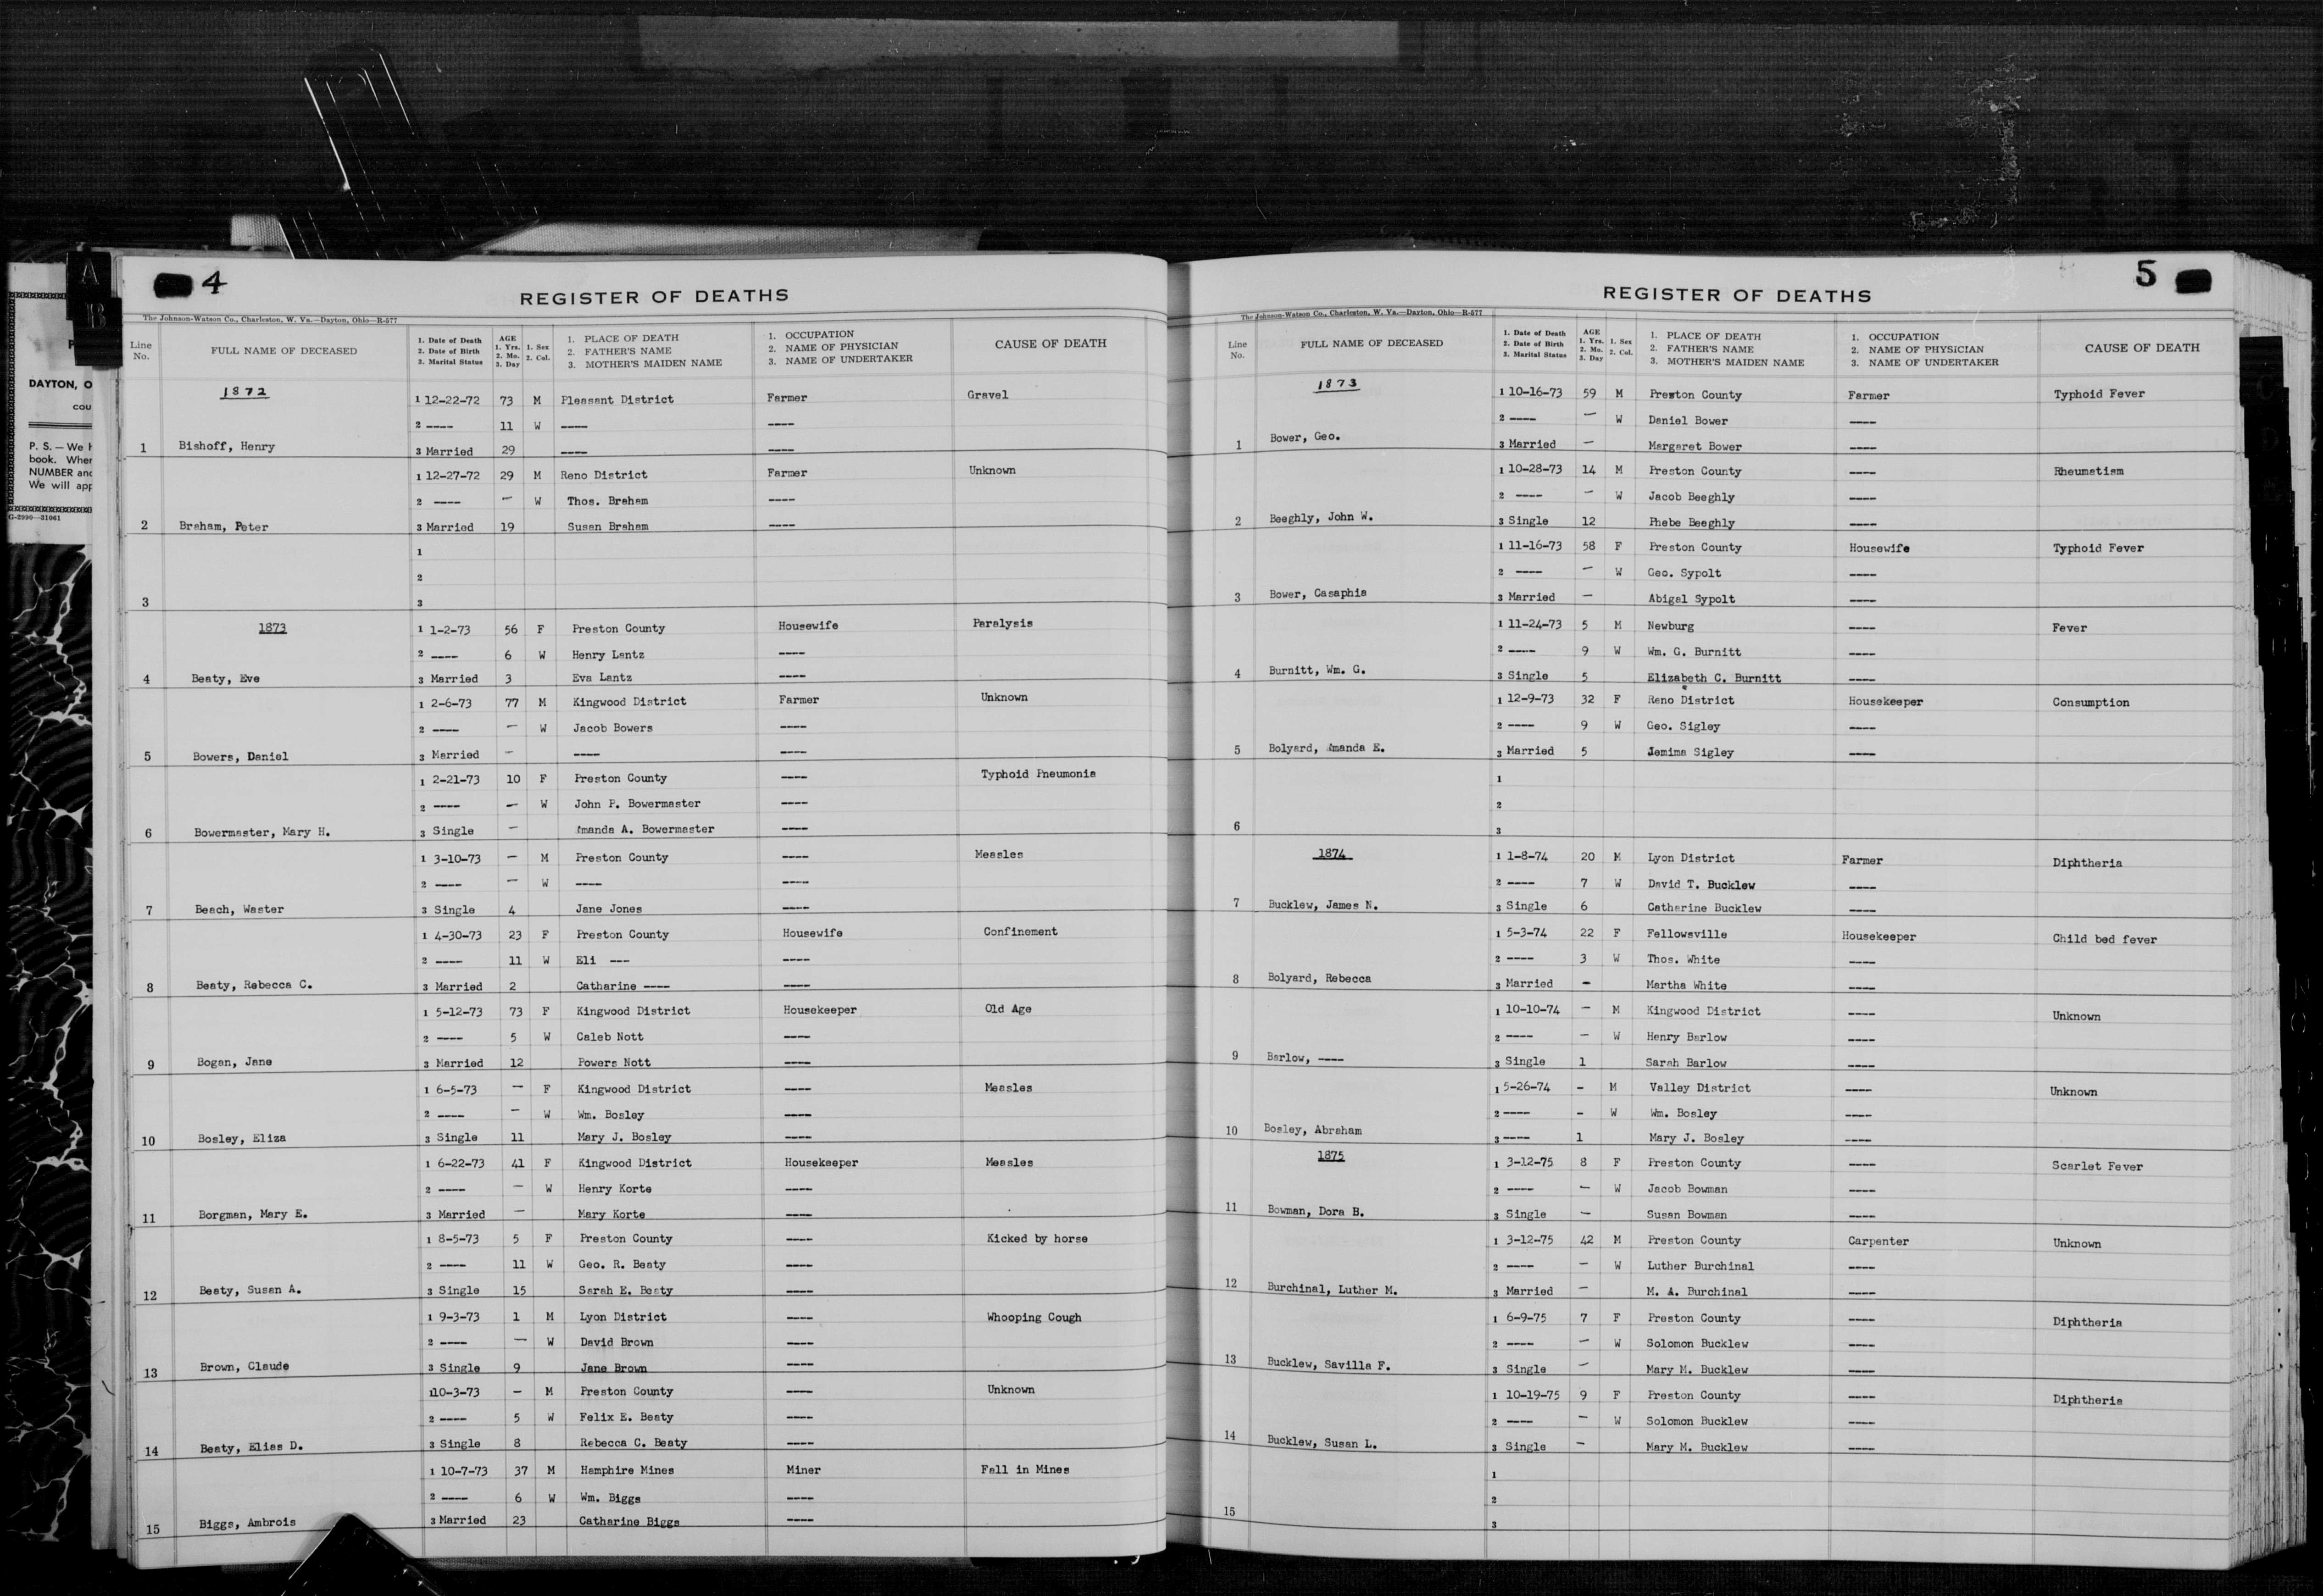 A
B
DAYTON, O
COU
P. S. — We
book. Wher
NUMBER and
We will app
G-2990—31061
4
REGISTER OF DEATHS
The Johnson-Watson Co., Charleston, W. Va.—Dayton, Ohio—R-577
Line No. FULL NAME OF DECEASED 1. Date of Death 2. Date of Birth 3. Marital Status AGE 1. Yrs. 2. Mo. 3. Day 1. Sex 2. Col. 1. PLACE OF DEATH 2. FATHER'S NAME 3. MOTHER'S MAIDEN NAME 1. OCCUPATION 2. NAME OF PHYSICIAN 3. NAME OF UNDERTAKER CAUSE OF DEATH
1872
1 12-22-72 73 M Pleasant District Farmer Gravel
2 ---- 11 W ---- ----
1 Bishoff, Henry 3 Married 29 ---- ----
1 12-27-72 29 M Reno District Farmer Unknown
2 ---- — W Thos. Braham ----
2 Braham, Peter 3 Married 19 Susan Braham ----
1
2
3 3
1873
1 1-2-73 56 F Preston County Housewife Paralysis
2 ---- 6 W Henry Lantz ----
4 Beaty, Eve 3 Married 3 Eva Lantz ----
1 2-6-73 77 M Kingwood District Farmer Unknown
2 ---- — W Jacob Bowers ----
5 Bowers, Daniel 3 Married — ---- ----
1 2-21-73 10 F Preston County ---- Typhoid Pneumonia
2 ---- — W John P. Bowermaster ----
6 Bowermaster, Mary H. 3 Single — Amanda A. Bowermaster ----
1 3-10-73 — M Preston County ---- Measles
2 ---- — W ---- ----
7 Beach, Waster 3 Single 4 Jane Jones ----
1 4-30-73 23 F Preston County Housewife Confinement
2 ---- 11 W Eli --- ----
8 Beaty, Rebecca C. 3 Married 2 Catharine ---- ----
1 5-12-73 73 F Kingwood District Housekeeper Old Age
2 ---- 5 W Caleb Nott ----
9 Bogan, Jane 3 Married 12 Powers Nott ----
1 6-5-73 — F Kingwood District ---- Measles
2 ---- — W Wm. Bosley ----
10 Bosley, Eliza 3 Single 11 Mary J. Bosley ----
1 6-22-73 41 F Kingwood District Housekeeper Measles
2 ---- — W Henry Korte ----
11 Borgman, Mary E. 3 Married — Mary Korte ----
1 8-5-73 5 F Preston County ---- Kicked by horse
2 ---- 11 W Geo. R. Beaty ----
12 Beaty, Susan A. 3 Single 15 Sarah E. Beaty ----
1 9-3-73 1 M Lyon District ---- Whooping Cough
2 ---- — W David Brown ----
13 Brown, Claude 3 Single 9 Jane Brown ----
1 10-3-73 - M Preston County ---- Unknown
2 ---- 5 W Felix E. Beaty ----
14 Beaty, Elias D. 3 Single 8 Rebecca C. Beaty ----
1 10-7-73 37 M Hamphire Mines Miner Fall in Mines
2 ---- 6 W Wm. Biggs ----
15 Biggs, Ambrois 3 Married 23 Catharine Biggs ----
5
REGISTER OF DEATHS
The Johnson-Watson Co., Charleston, W. Va.—Dayton, Ohio—R-577
Line No. FULL NAME OF DECEASED 1. Date of Death 2. Date of Birth 3. Marital Status AGE 1. Yrs. 2. Mo. 3. Day 1. Sex 2. Col. 1. PLACE OF DEATH 2. FATHER'S NAME 3. MOTHER'S MAIDEN NAME 1. OCCUPATION 2. NAME OF PHYSICIAN 3. NAME OF UNDERTAKER CAUSE OF DEATH
1873
1 10-16-73 59 M Preston County Farmer Typhoid Fever
2 ---- — W Daniel Bower ----
1 Bower, Geo. 3 Married — Margaret Bower ----
1 10-28-73 14 M Preston County ---- Rheumatism
2 ---- — W Jacob Beeghly ----
2 Beeghly, John W. 3 Single 12 Phebe Beeghly ----
1 11-16-73 58 F Preston County Housewife Typhoid Fever
2 ---- — W Geo. Sypolt ----
3 Bower, Casaphia 3 Married — Abigal Sypolt ----
1 11-24-73 5 M Newburg ---- Fever
2 ---- 9 W Wm. G. Burnitt ----
4 Burnitt, Wm. G. 3 Single 5 Elizabeth C. Burnitt ----
1 12-9-73 32 F Reno District Housekeeper Consumption
2 ---- 9 W Geo. Sigley ----
5 Bolyard, Amanda E. 3 Married 5 Jemima Sigley ----
1
2
6 3
1874
1 1-8-74 20 M Lyon District Farmer Diphtheria
2 ---- 7 W David T. Bucklew ----
7 Bucklew, James N. 3 Single 6 Catharine Bucklew ----
1 5-3-74 22 F Fellowsville Housekeeper Child bed fever
2 ---- 3 W Thos. White ----
8 Bolyard, Rebecca 3 Married - Martha White ----
1 10-10-74 — M Kingwood District ---- Unknown
2 ---- — W Henry Barlow ----
9 Barlow, ---- 3 Single 1 Sarah Barlow ----
1 5-26-74 - M Valley District ---- Unknown
2 ---- - W Wm. Bosley ----
10 Bosley, Abraham 3 ---- 1 Mary J. Bosley ----
1875
1 3-12-75 8 F Preston County ---- Scarlet Fever
2 ---- — W Jacob Bowman ----
11 Bowman, Dora B. 3 Single — Susan Bowman ----
1 3-12-75 42 M Preston County Carpenter Unknown
2 ---- — W Luther Burchinal ----
12 Burchinal, Luther M. 3 Married — M. A. Burchinal ----
1 6-9-75 7 F Preston County ---- Diphtheria
2 ---- — W Solomon Bucklew ----
13 Bucklew, Savilla F. 3 Single — Mary M. Bucklew ----
1 10-19-75 9 F Preston County ---- Diphtheria
2 ---- — W Solomon Bucklew ----
14 Bucklew, Susan L. 3 Single — Mary M. Bucklew ----
1
2
15 3
C
D